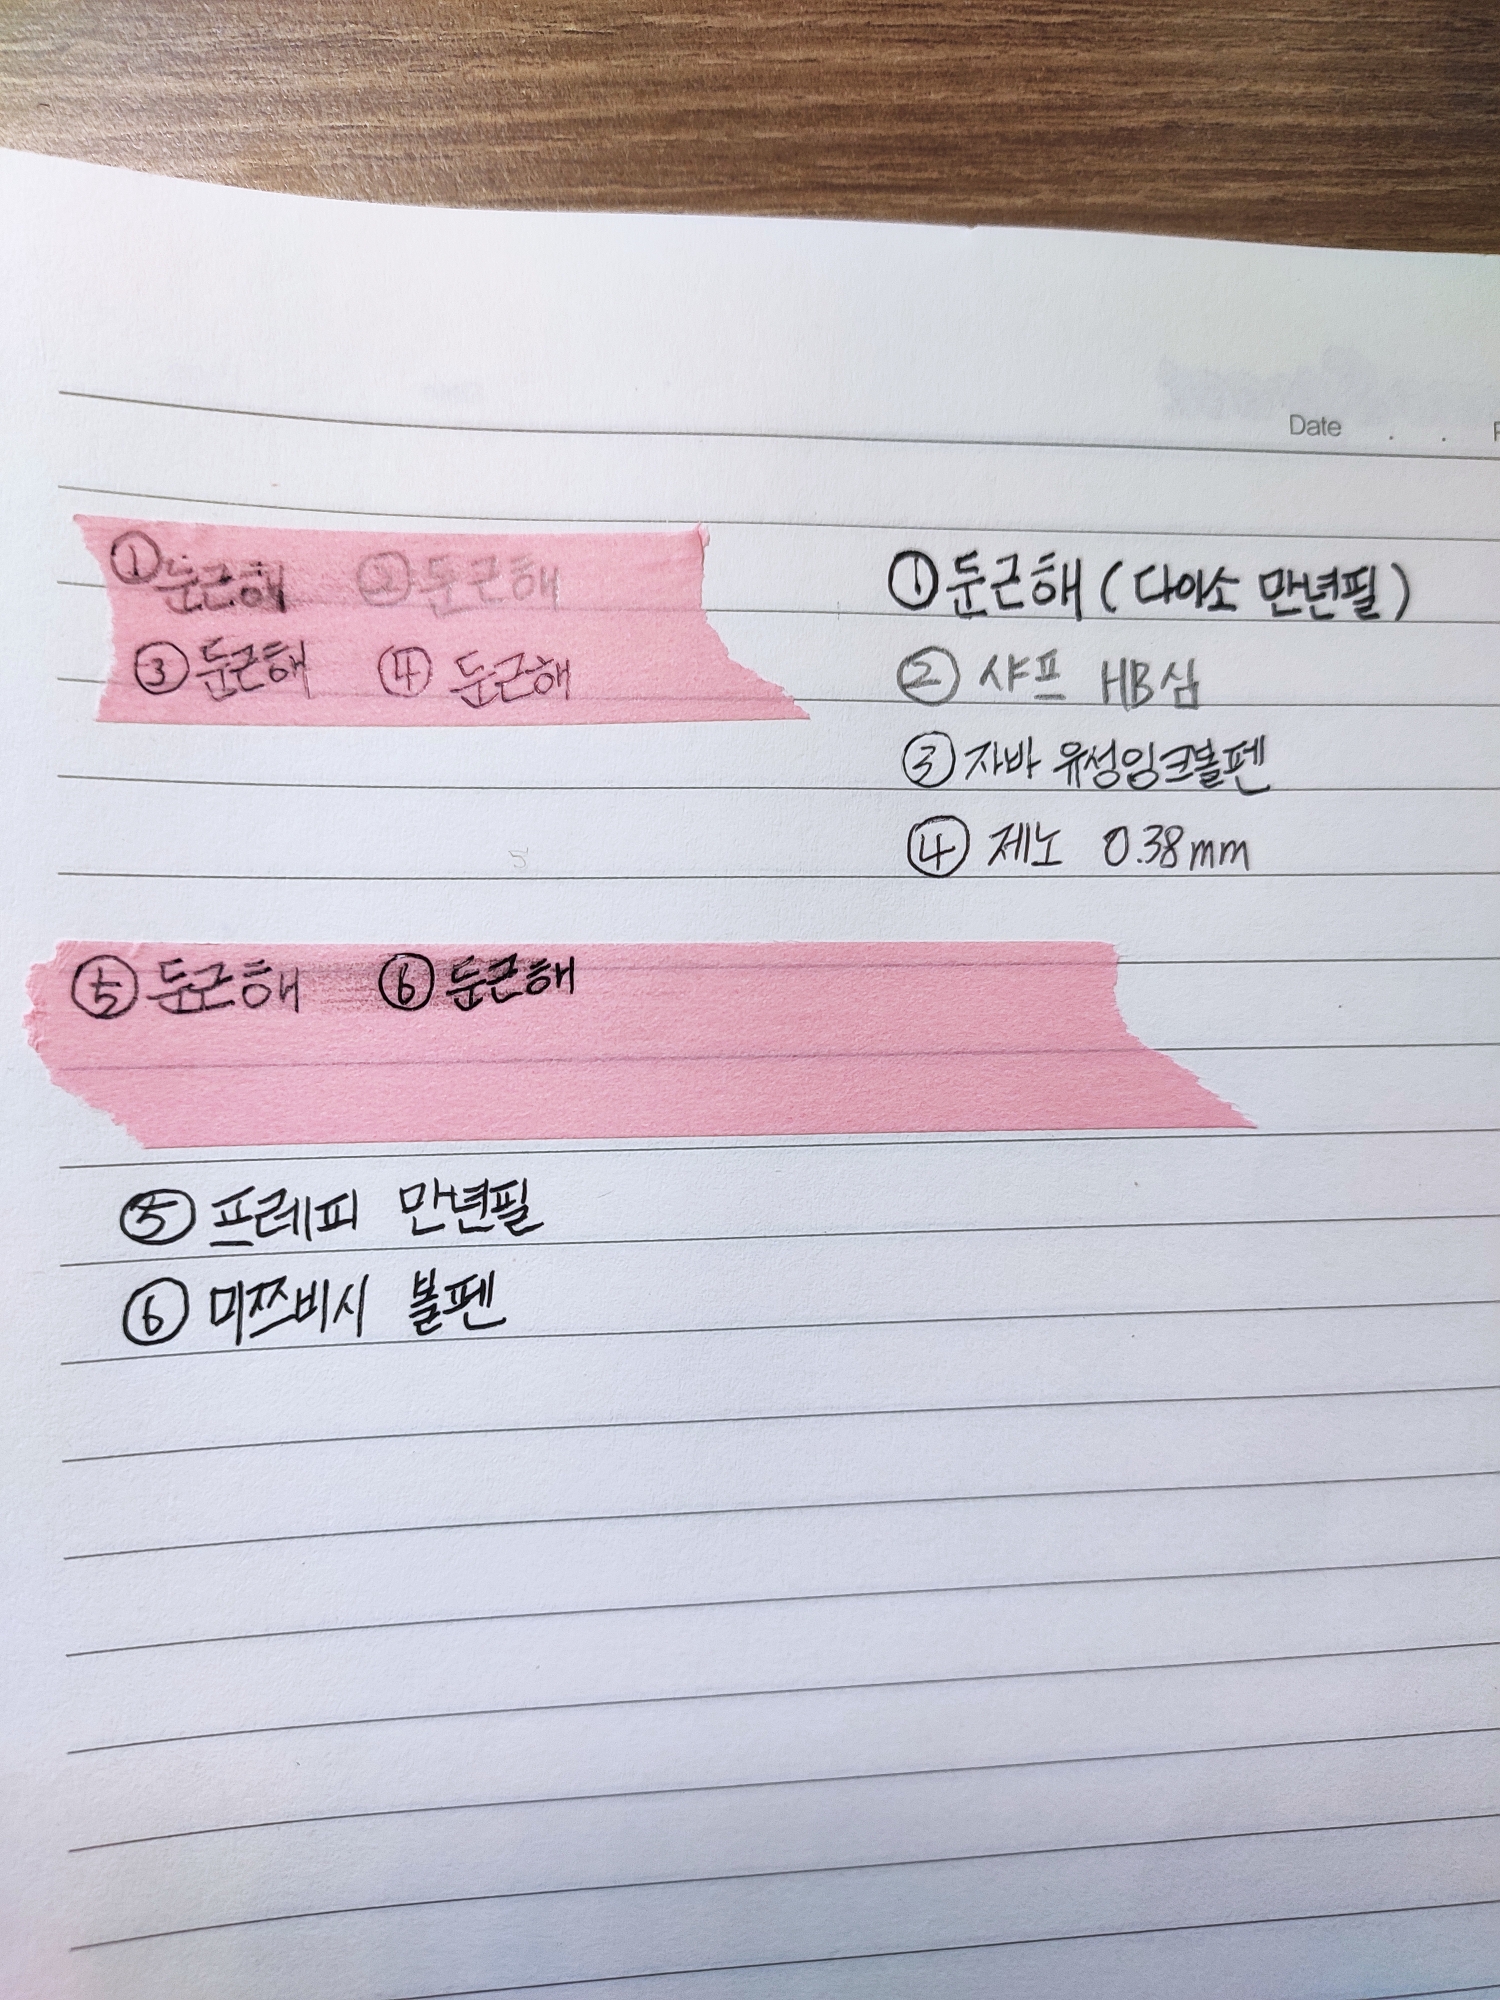 Date . .
①둔근해 ②둔근해
③둔근해 ④둔근해
①둔근해 (다이소 만년필)
② 샤프 HB심
③자바 유성잉크볼펜
④ 제노 0.38mm
5
⑤둔근해 ⑥둔근해
⑤프레피 만년필
⑥ 미쯔비시 볼펜